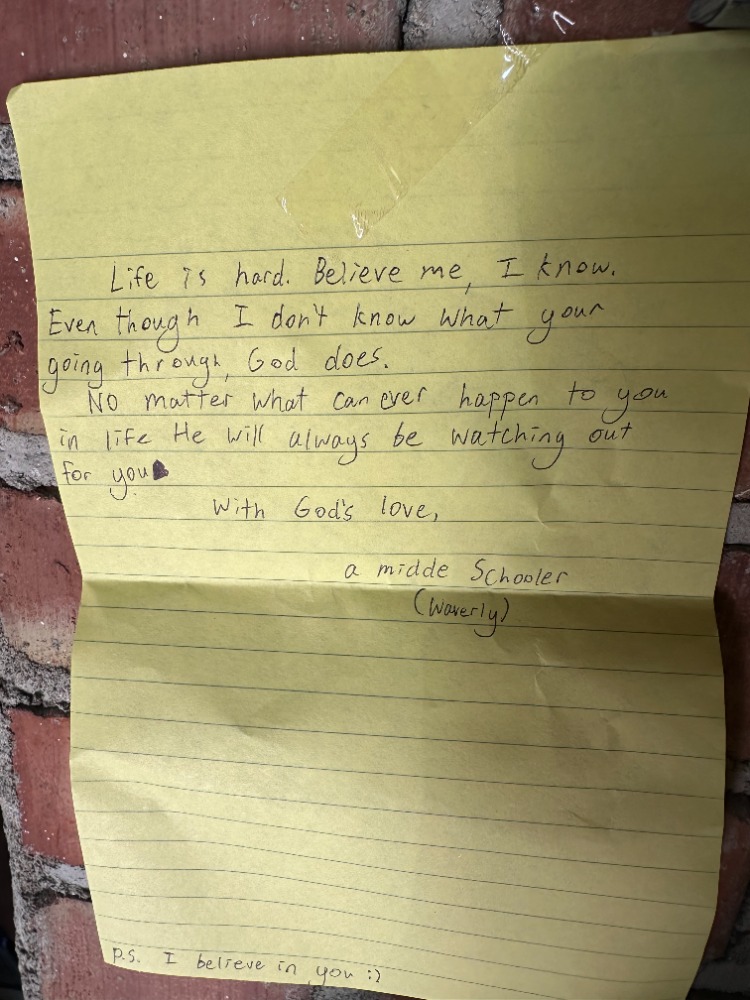 Life is hard. Believe me, I know.
Even though I don't know what your
going through, God does.
No matter what can ever happen to you
in life He will always be watching out
for you.
With God's love,
a midde Schooler
(Waverly)
p.s. I believe in you :)